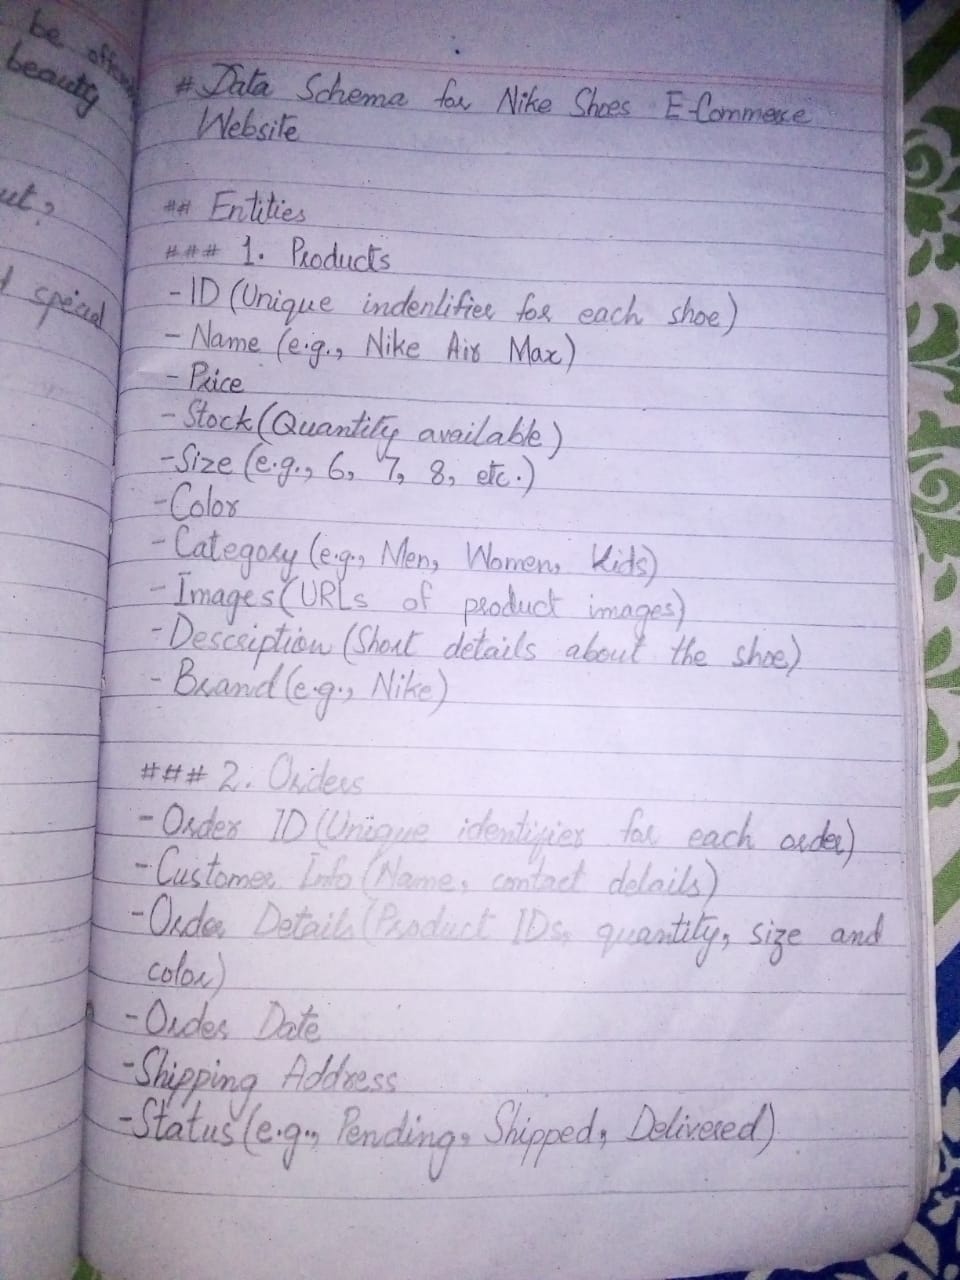 be
beauty
special
# Data Schema for Nike Shoes E-Commerce
Website
## Entities
### 1. Products
- ID (Unique indenlifier for each shoe)
- Name (e.g., Nike Air Max)
- Price
- Stock (Quantity available)
- Size (e.g., 6, 7, 8, etc.)
- Color
- Category (e.g., Men, Women, Kids)
- Images (URLs of product images)
- Description (Short details about the shoe)
- Brand (e.g., Nike)
### 2. Orders
- Order ID (Unique identifier for each order)
- Customer Info (Name, contact details)
- Order Details (Product IDs, quantity, size and
color)
- Order Date
- Shipping Address
- Status (e.g., Pending, Shipped, Delivered)